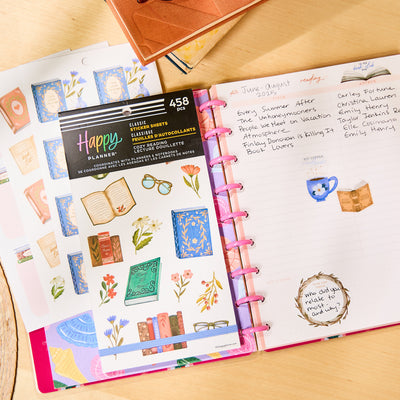 458
pcs
CLASSIC
STICKER SHEETS
CLASSIQUE
FEUILLES D'AUTOCOLLANTS
Happy
PLANNER
COZY READING
LECTURE DOUILLETTE
COORDINATES WITH PLANNERS & NOTEBOOKS
SE COORDONNE AVEC LES AGENDAS ET LES CARNETS DE NOTES
June-August
2025
reading
Every Summer After
The Unhoneymooners
People We Meet on Vacation
Atmosphere
Finlay Donovan is Killing It
Book Lovers
Carley Fortune
Christina Lauren
Emily Henry
Taylor Jenkins Re
Elle Cosimano
Emily Henry
who did you
relate to
most-
and why?